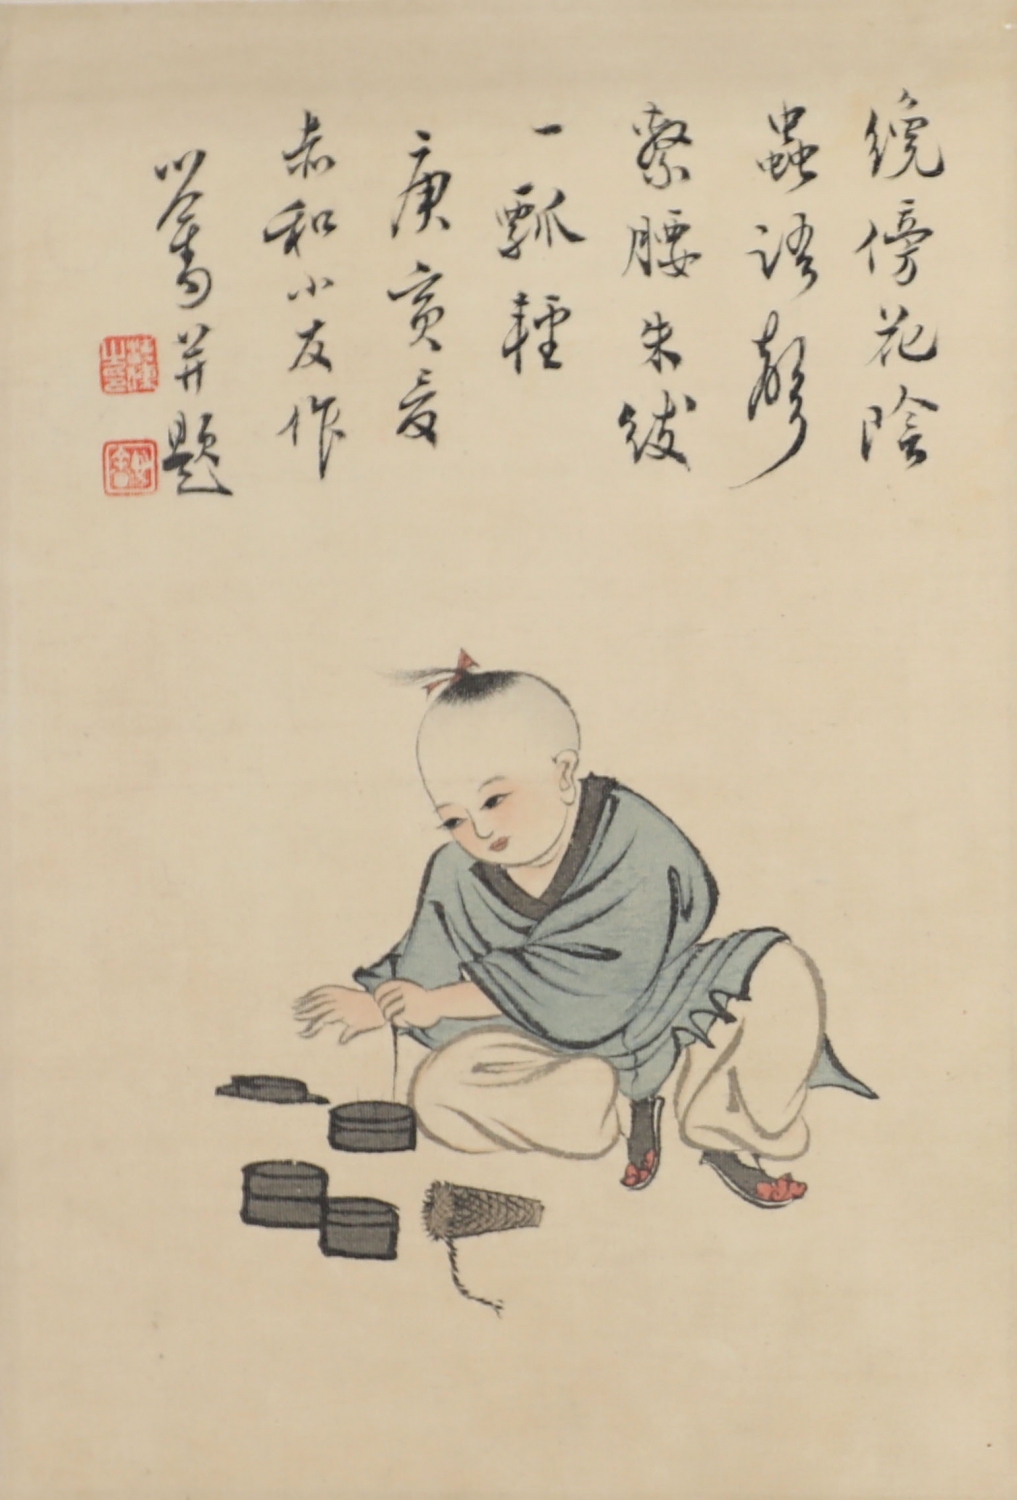 纔傍花陰
蟲語聲
繫腰朱紱
一瓢輕
庚寅夏
赤和小友作
心畬并題